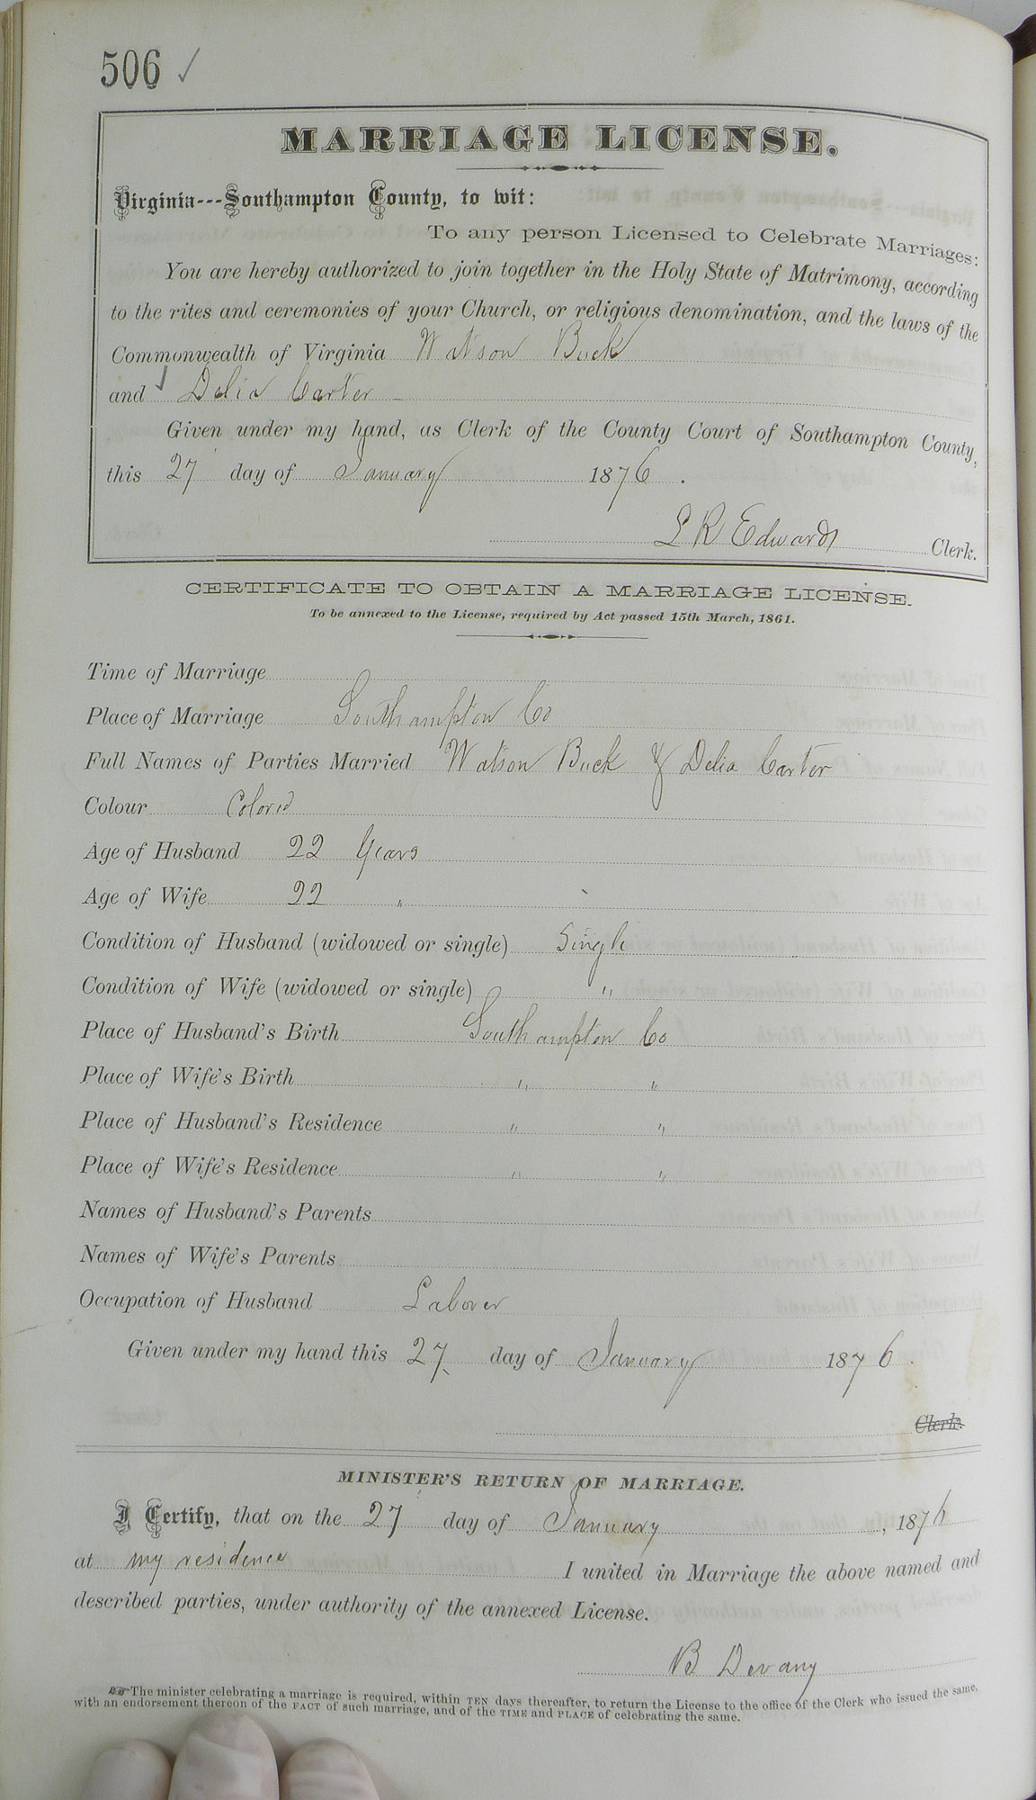 506 ✓
MARRIAGE LICENSE.
Virginia---Southampton County, to wit:
To any person Licensed to Celebrate Marriages:
You are hereby authorized to join together in the Holy State of Matrimony, according
to the rites and ceremonies of your Church, or religious denomination, and the laws of the
Commonwealth of Virginia Watson Buck
and Delia Carter
Given under my hand, as Clerk of the County Court of Southampton County,
this 27 day of January 1876.
L R Edwards Clerk.
CERTIFICATE TO OBTAIN A MARRIAGE LICENSE.
To be annexed to the License, required by Act passed 15th March, 1861.
Time of Marriage
Place of Marriage Southampton Co
Full Names of Parties Married Watson Buck & Delia Carter
Colour Colored
Age of Husband 22 Years
Age of Wife 22 "
Condition of Husband (widowed or single) Single
Condition of Wife (widowed or single) "
Place of Husband's Birth Southampton Co
Place of Wife's Birth " "
Place of Husband's Residence " "
Place of Wife's Residence " "
Names of Husband's Parents
Names of Wife's Parents
Occupation of Husband Laborer
Given under my hand this 27 day of January 1876.
Clerk.
MINISTER'S RETURN OF MARRIAGE.
I Certify, that on the 27 day of January, 1876
at my residence I united in Marriage the above named and
described parties, under authority of the annexed License.
B Devany
The minister celebrating a marriage is required, within TEN days thereafter, to return the License to the office of the Clerk who issued the same,
with an endorsement thereon of the FACT of such marriage, and of the TIME and PLACE of celebrating the same.